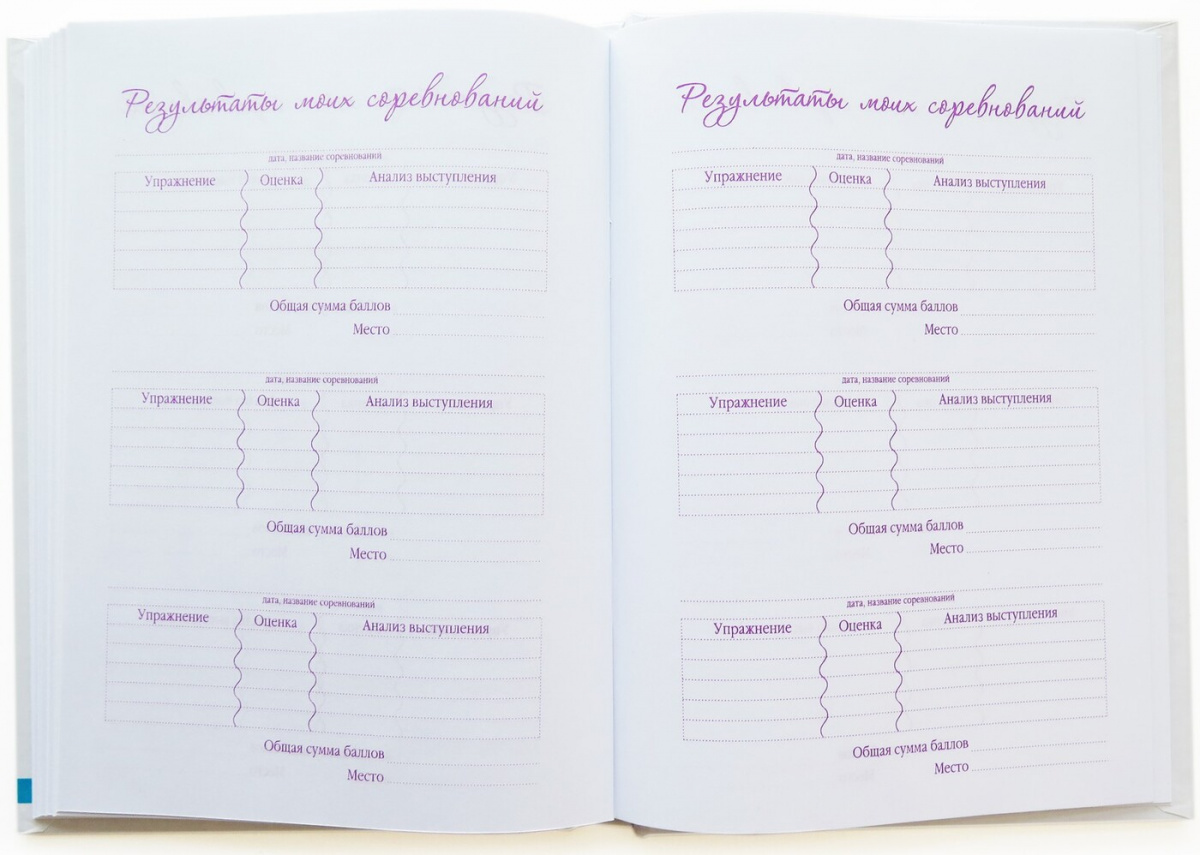 Результаты моих соревнований
дата, название соревнований
Упражнение Оценка Анализ выступления
Общая сумма баллов
Место
дата, название соревнований
Упражнение Оценка Анализ выступления
Общая сумма баллов
Место
дата, название соревнований
Упражнение Оценка Анализ выступления
Общая сумма баллов
Место
Результаты моих соревнований
дата, название соревнований
Упражнение Оценка Анализ выступления
Общая сумма баллов
Место
дата, название соревнований
Упражнение Оценка Анализ выступления
Общая сумма баллов
Место
дата, название соревнований
Упражнение Оценка Анализ выступления
Общая сумма баллов
Место